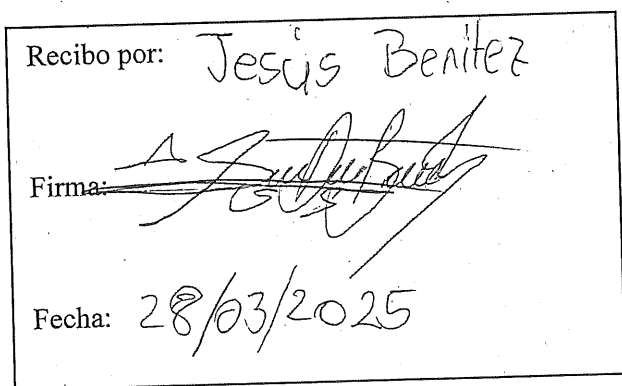 Recibo por: Jesús Benitez
Firma:
Fecha: 28/03/2025